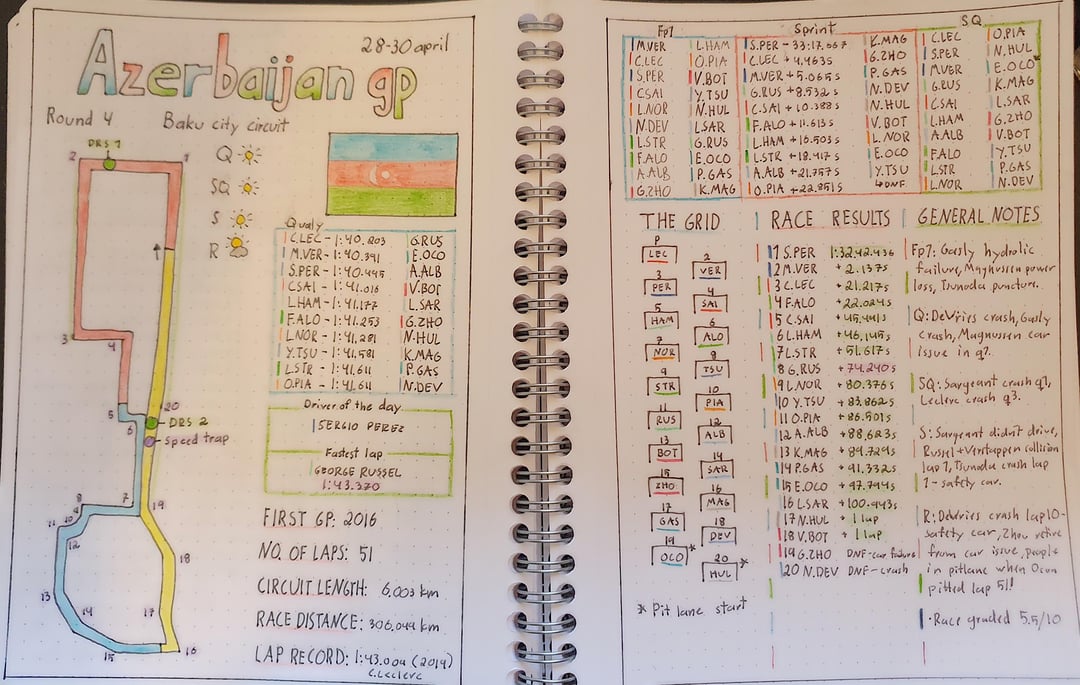 28-30 april
Azerbaijan gp
Round 4 Baku city circuit
DRS 1
2
1
3
4
5
6
20
DRS 2
speed trap
7
8
9
10
11
12
19
13
14
18
17
15
16
Q
SQ
S
R
Qualy
C.LEC - 1:40.203
M.VER - 1:40.391
S.PER - 1:40.495
C.SAI - 1:41.016
L.HAM - 1:41.177
F.ALO - 1:41.253
L.NOR - 1:41.281
Y.TSU - 1:41.581
L.STR - 1:41.611
O.PIA - 1:41.611
G.RUS
E.OCO
A.ALB
V.BOT
L.SAR
G.ZHO
N.HUL
K.MAG
P.GAS
N.DEV
Driver of the day
SERGIO PEREZ
Fastest lap
GEORGE RUSSEL
1:43.370
FIRST GP: 2016
NO. OF LAPS: 51
CIRCUIT LENGTH: 6,003 km
RACE DISTANCE: 306,049 km
LAP RECORD: 1:43.009 (2019)
C.Leclerc
Fp1
M.VER
C.LEC
S.PER
C.SAI
L.NOR
N.DEV
L.STR
F.ALO
A.ALB
G.ZHO
L.HAM
O.PIA
V.BOT
Y.TSU
N.HUL
L.SAR
G.RUS
E.OCO
P.GAS
K.MAG
Sprint
S.PER - 33:17.667
C.LEC + 4.463s
M.VER + 5.065s
G.RUS + 8.532s
C.SAI + 10.388s
F.ALO + 11.613s
L.HAM + 16.503s
L.STR + 18.417s
A.ALB + 21.757s
O.PIA + 22.851s
K.MAG
G.ZHO
P.GAS
N.DEV
N.HUL
V.BOT
L.NOR
E.OCO
Y.TSU
DNF
SQ
C.LEC
S.PER
M.VER
G.RUS
C.SAI
L.HAM
A.ALB
F.ALO
L.STR
L.NOR
O.PIA
N.HUL
E.OCO*
K.MAG
L.SAR
G.ZHO
V.BOT
Y.TSU
P.GAS
N.DEV
THE GRID
P
LEC
2
VER
3
PER
4
SAI
5
HAM
6
ALO
7
NOR
8
TSU
9
STR
10
PIA
11
RUS
12
ALB
13
BOT
14
SAR
15
ZHO
16
MAG
17
GAS
18
DEV
19
OCO*
20
HUL*
* Pit lane start
RACE RESULTS
1 S.PER 1:32.42.436
2 M.VER + 2.137s
3 C.LEC + 21.217s
4 F.ALO + 22.024s
5 C.SAI + 45.491s
6 L.HAM + 46,145s
7 L.STR + 51.617s
8 G.RUS + 74.240s
9 L.NOR + 80.376s
10 Y.TSU + 83.862s
11 O.PIA + 86.501s
12 A.ALB + 88,623s
13 K.MAG + 89.729s
14 P.GAS + 91.332s
15 E.OCO + 97.794s
16 L.SAR + 100.943s
17 N.HUL + 1 lap
18 V.BOT + 1 lap
19 G.ZHO DNF-car failure
20 N.DEV DNF-crash
GENERAL NOTES
Fp1: Gasly hydrolic
failure, Maghussen power
loss, Tsunoda puncture.
Q: DeVries crash, Gasly
crash, Magnussen car
issue in q1.
SQ: Sargeant crash q1,
Leclerc crash q3.
S: Sargeant didn't drive,
Russel+Verstappen collision
lap 1, Tsunoda crash lap
1 - safety car.
R: DeVries crash lap 10-
safety car, Zhou retire
from car issue, people
in pitlane when Ocon
pitted lap 51!!
·Race graded 5.5/10